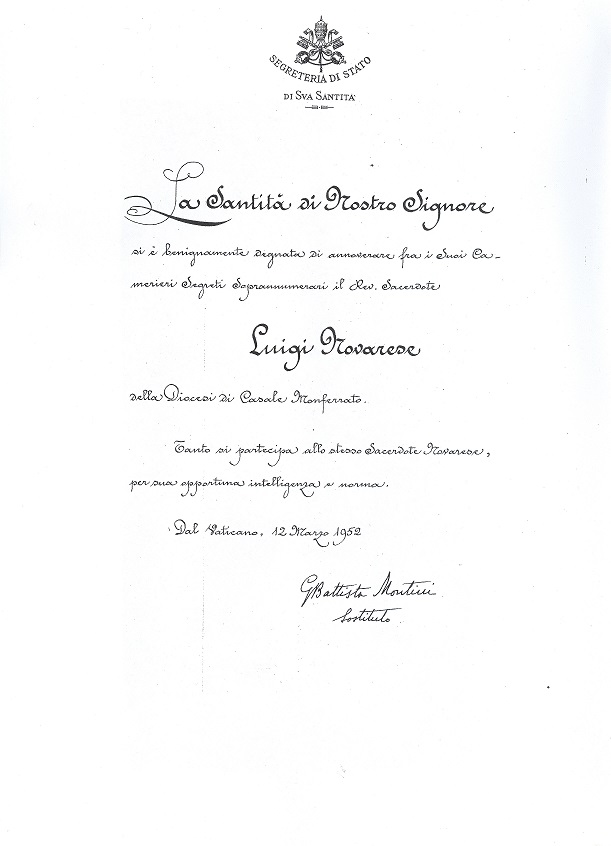 SEGRETERIA DI STATO
DI SVA SANTITA'
La Santità di Nostro Signore
si è benignamente degnata di annoverare fra i Suoi Ca-
merieri Segreti Soprannumerari il Rev. Sacerdote
Luigi Novarese
della Diocesi di Casale Monferrato.
Tanto si partecipa allo stesso Sacerdote Novarese,
per sua opportuna intelligenza e norma.
Dal Vaticano, 12 Marzo 1952
GBattista Montini
Sostituto